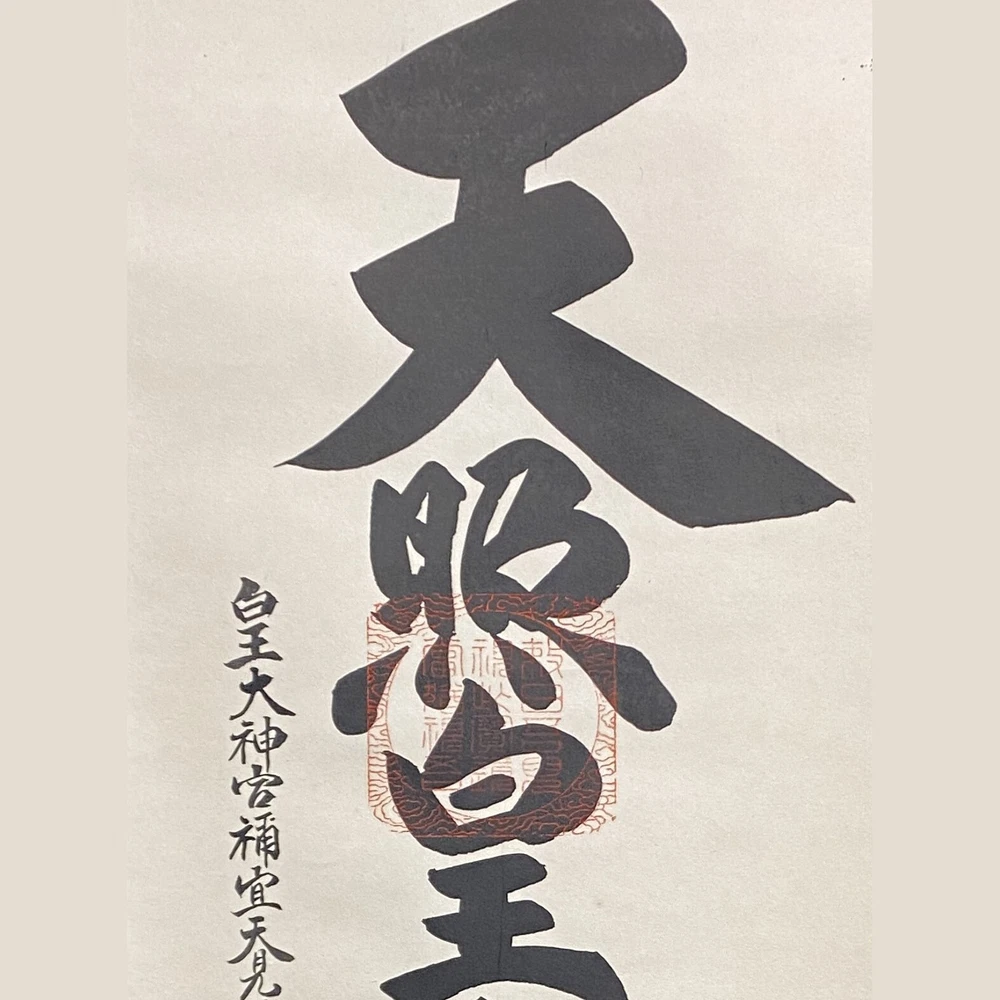 天照皇
皇大神宮禰宜天見